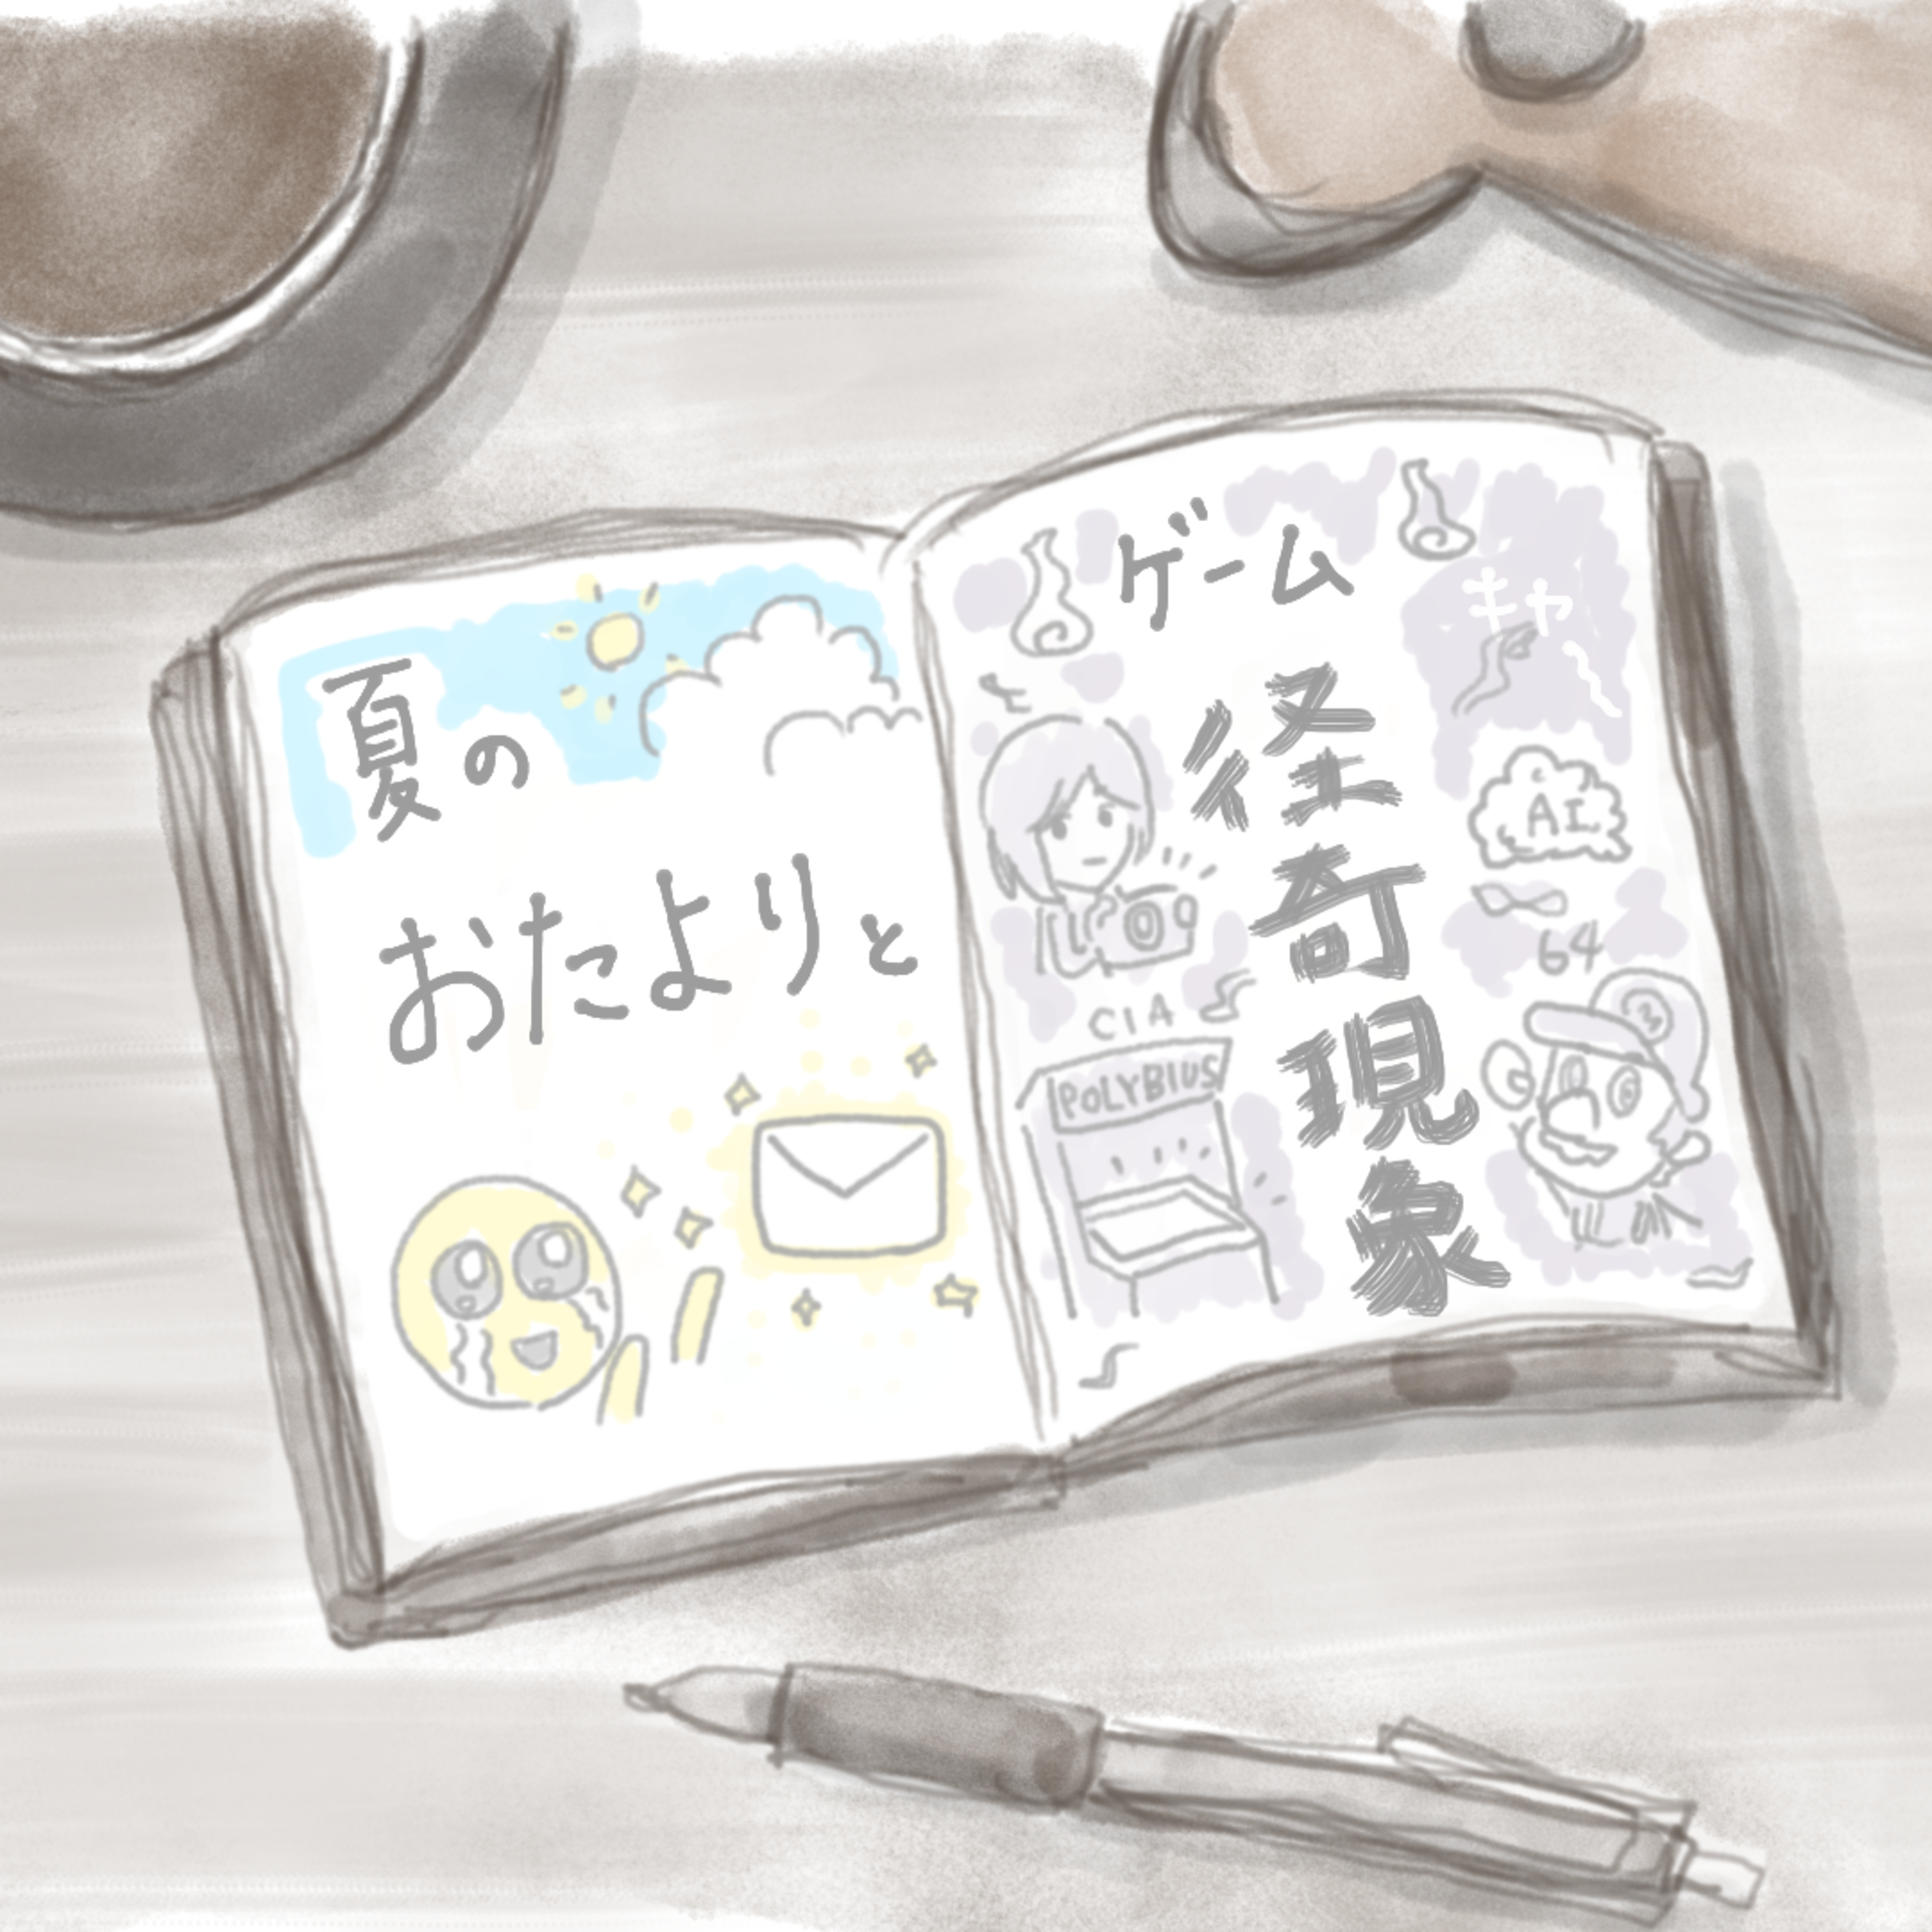 夏の
おたよりと
ゲーム
径奇現象
キャ〜
AI
64
CIA
POLYBIUS